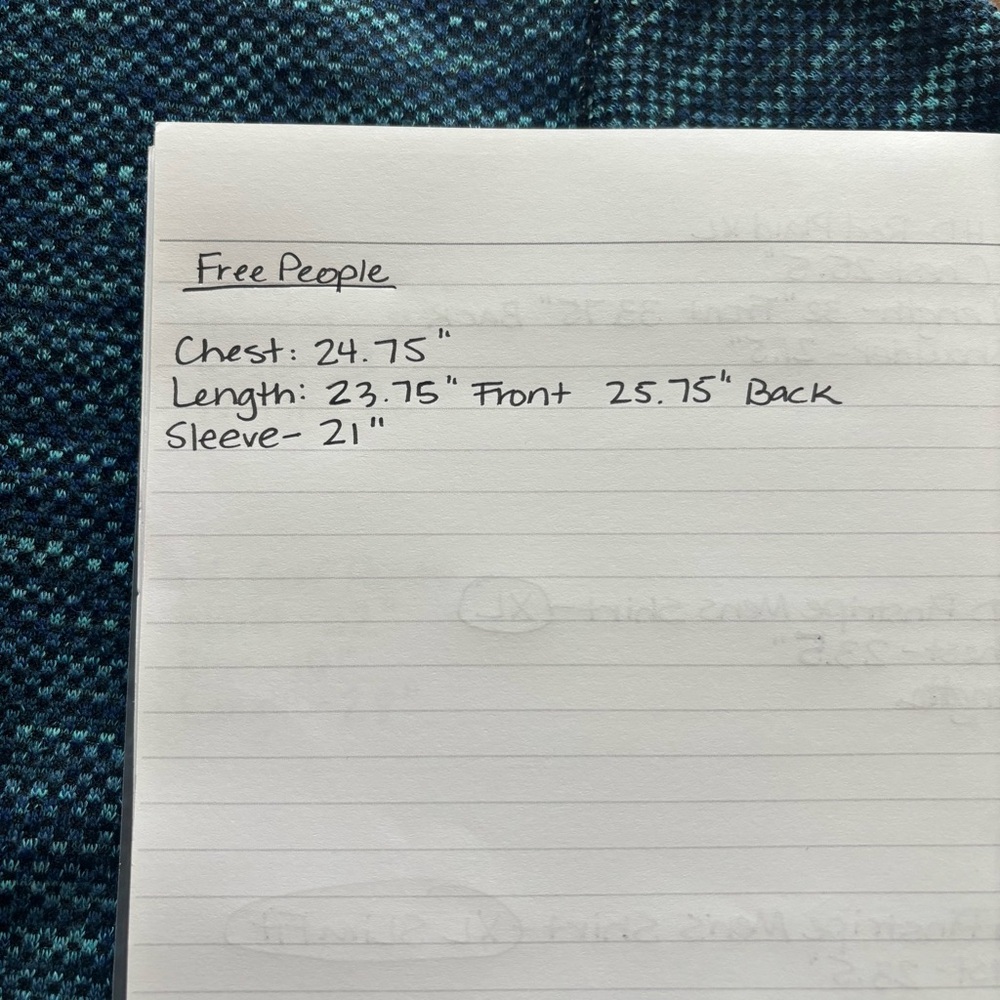 Free People
Chest: 24.75"
Length: 23.75" Front 25.75" Back
Sleeve- 21"